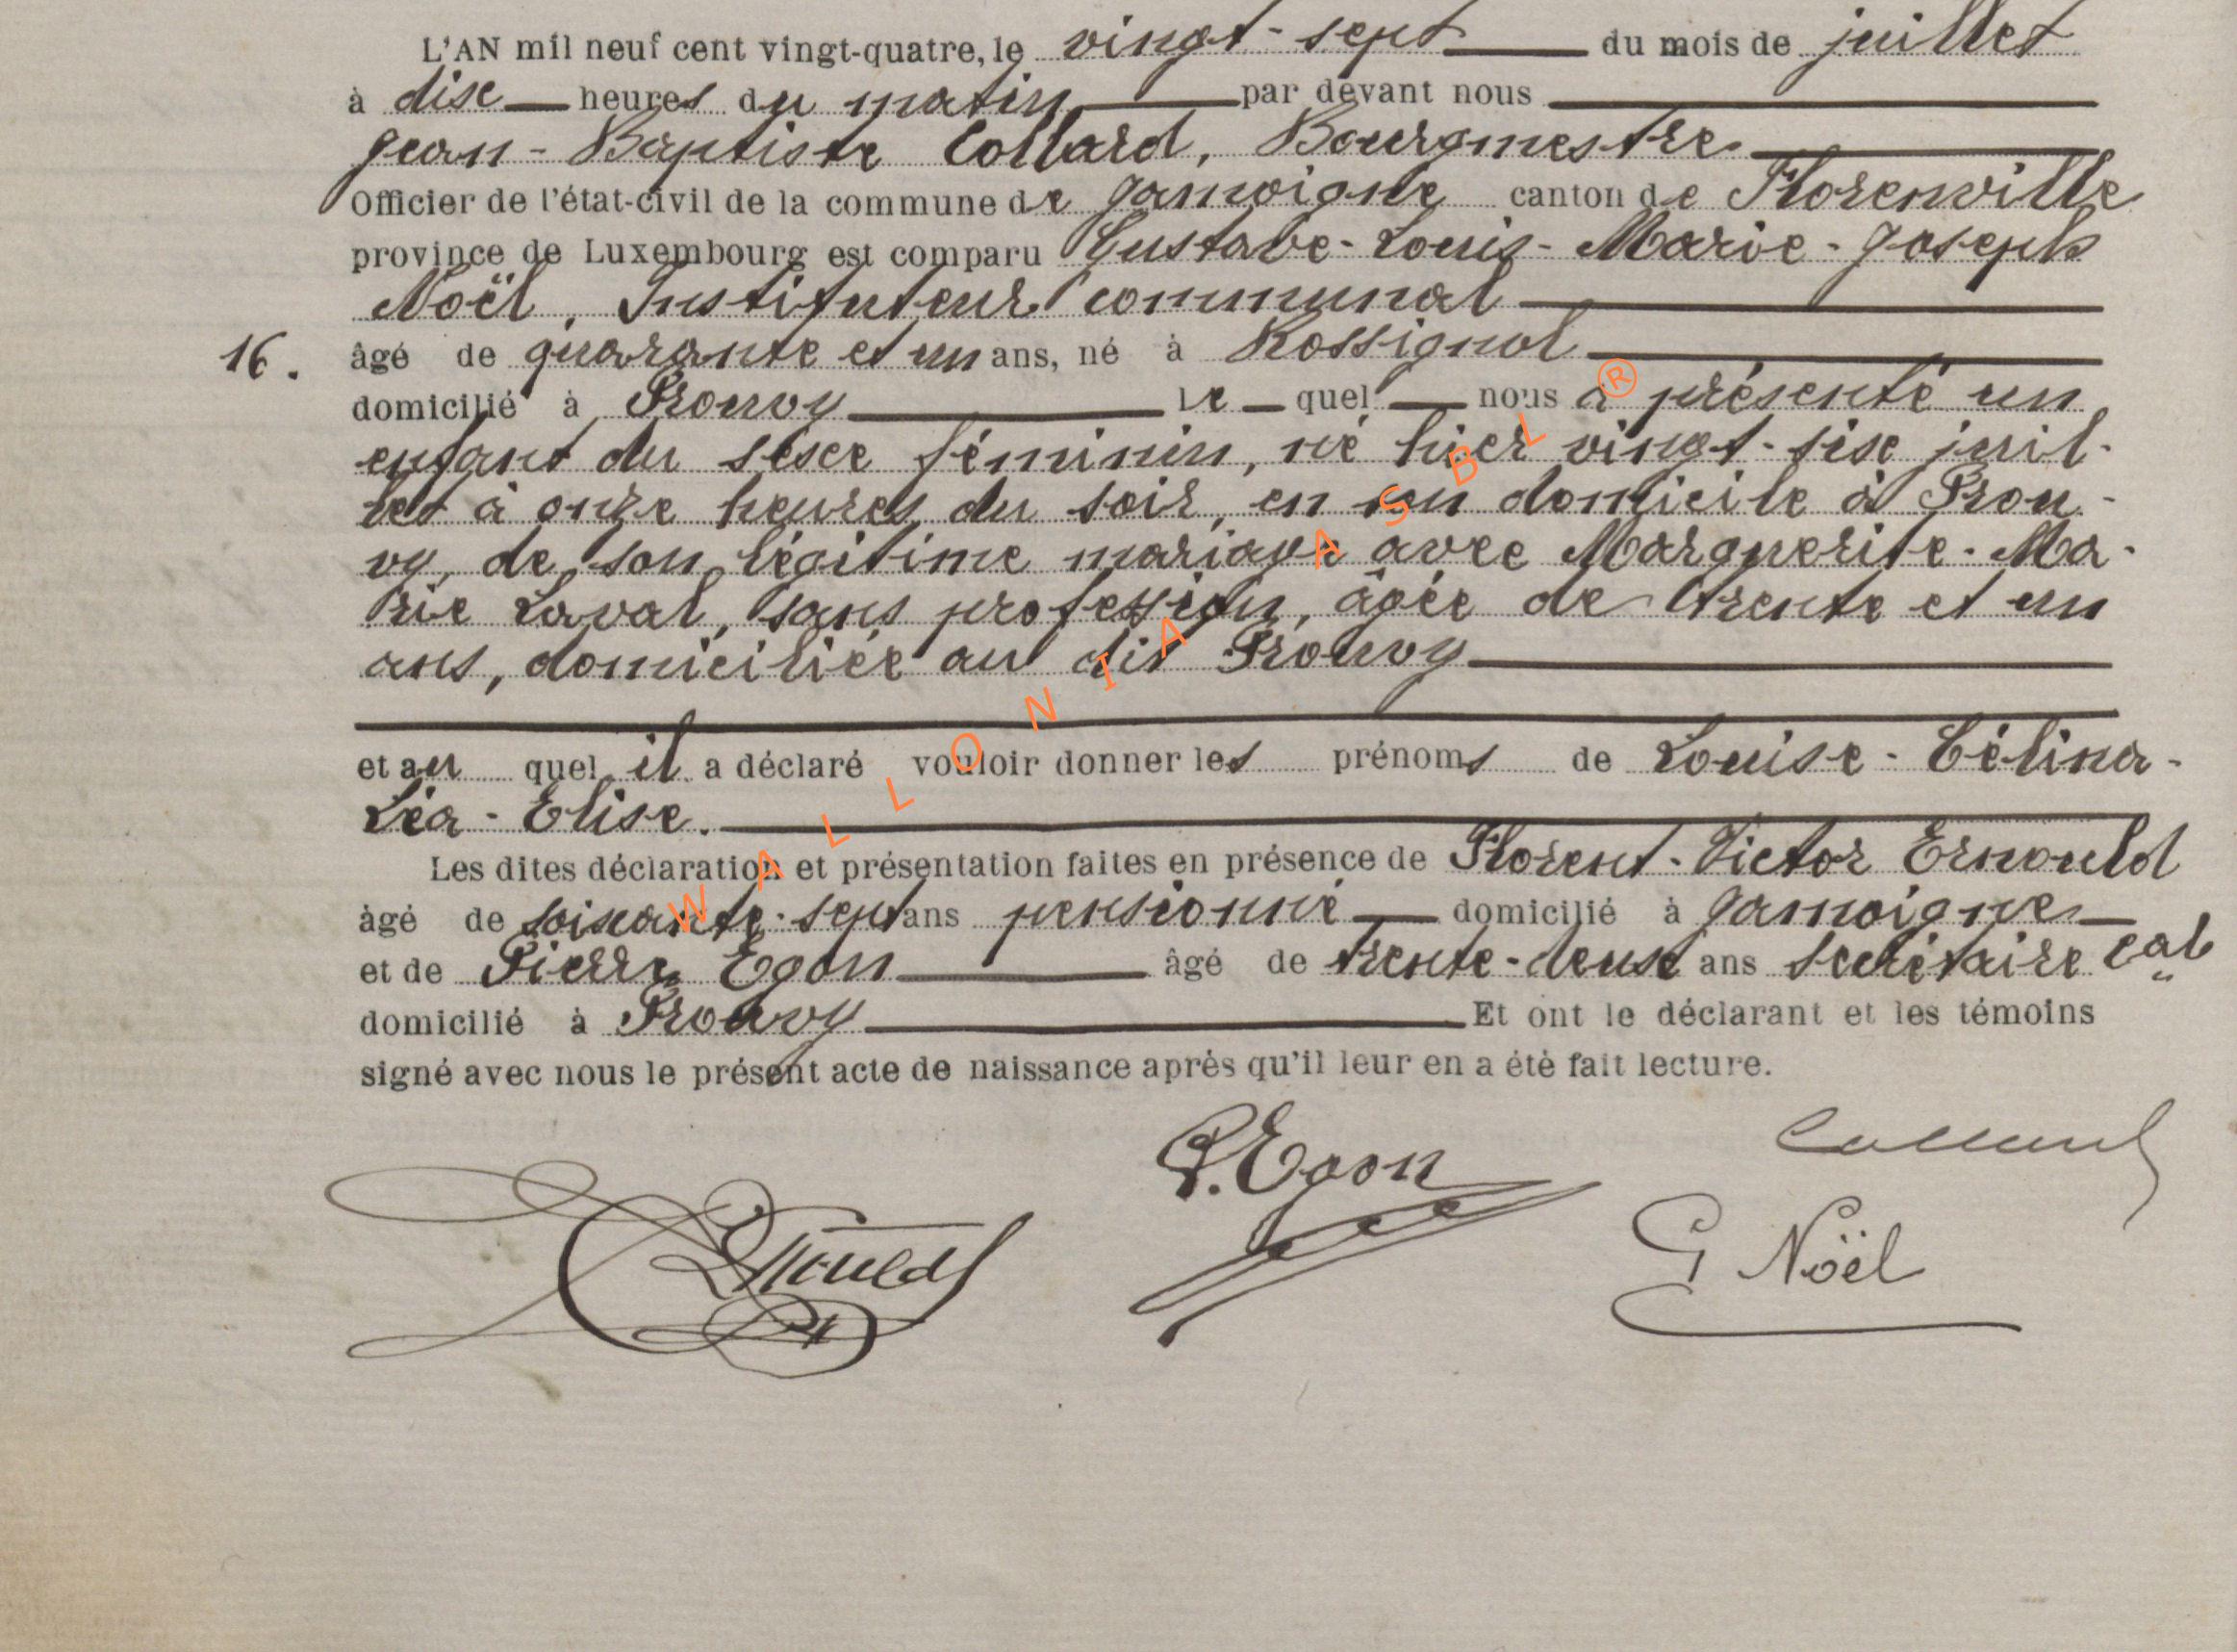 L'AN mil neuf cent vingt-quatre, le vingt-sept du mois de juillet
à dix heures du matin par devant nous
Jean-Baptiste Collard, Bourgmestre
Officier de l'état-civil de la commune de Jamoigne canton de Florenville
province de Luxembourg est comparu Gustave-Louis-Marie-Joseph
Noël, Instituteur communal
16. âgé de quarante et un ans, né à Rossignol
domicilié à Prouvy le quel nous a présenté un
enfant du sexe féminin, né hier vingt-six juil-
let à onze heures du soir, en son domicile à Prou-
vy, de son légitime mariage avec Marguerite-Ma-
rie Laval, sans profession, âgée de trente et un
ans, domiciliée au dit Prouvy
et au quel il a déclaré vouloir donner les prénoms de Louise-Célina-
Léa-Elise.
Les dites déclaration et présentation faites en présence de Florent-Victor Ernould
âgé de soixante-sept ans pensionné domicilié à Jamoigne
et de Pierre Egon âgé de trente-deux ans secrétaire cal
domicilié à Prouvy Et ont le déclarant et les témoins
signé avec nous le présent acte de naissance après qu'il leur en a été fait lecture.
P. Egon Collard
Ernould G Noël
WALLONIA ASBL ®